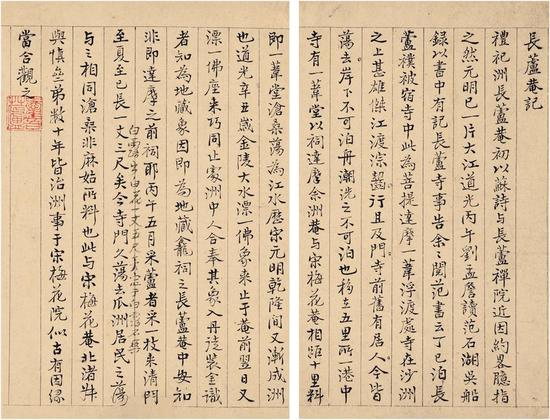 長蘆菴記
禮祀洲長蘆菴初以蘇詩與長蘆禪院近因約畧臆指
之然元明已一片大江道光丙午劉孟詹讀范石湖吳船
錄以書中有記長蘆寺事告余〻閱范書云丁巳泊長
蘆襆被宿寺中此為菩提達摩一葦浮渡處寺在沙洲
之上甚雄傑江渡淙齧行且及門〻前舊有居人今皆
蕩去岸下不可泊舟潮洗之不可泊也移在五里所港中
寺有一葦堂以祠達摩余洲菴與宋梅花菴相距十里料
即一葦堂滄桑蕩為江水歷宋元明乾隆間又漸成洲
也道光辛丑歲金陵大水漂一佛象來止于菴前翌日又
漂一佛座來巧同止處洲中人合奉其象入丹徒裝金識
者知為地藏象因即為地藏龕祠之長蘆菴中安知
非即達摩之前祠耶丙午五月采蘆者采一枝來清門
至夏至已長一丈三尺矣今寺門久蕩去瓜洲居民之蕩
白露出白花一丈五尺
與之相同滄桑非麻姑所料也此與宋梅花菴北渚艸
與慎無弟數十年皆治洲事于宋梅花院似古有因緣
當合觀之